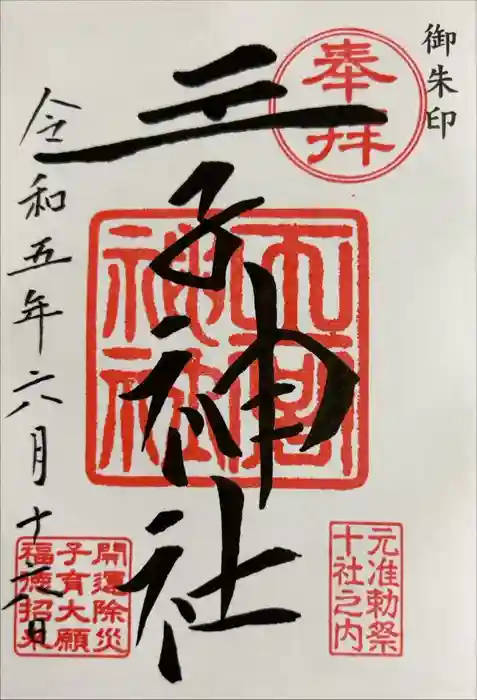 御朱印
奉拝
王子神社
令和五年六月十六日
元准勅祭
十社之内
開運除災
子育大願
福徳招来